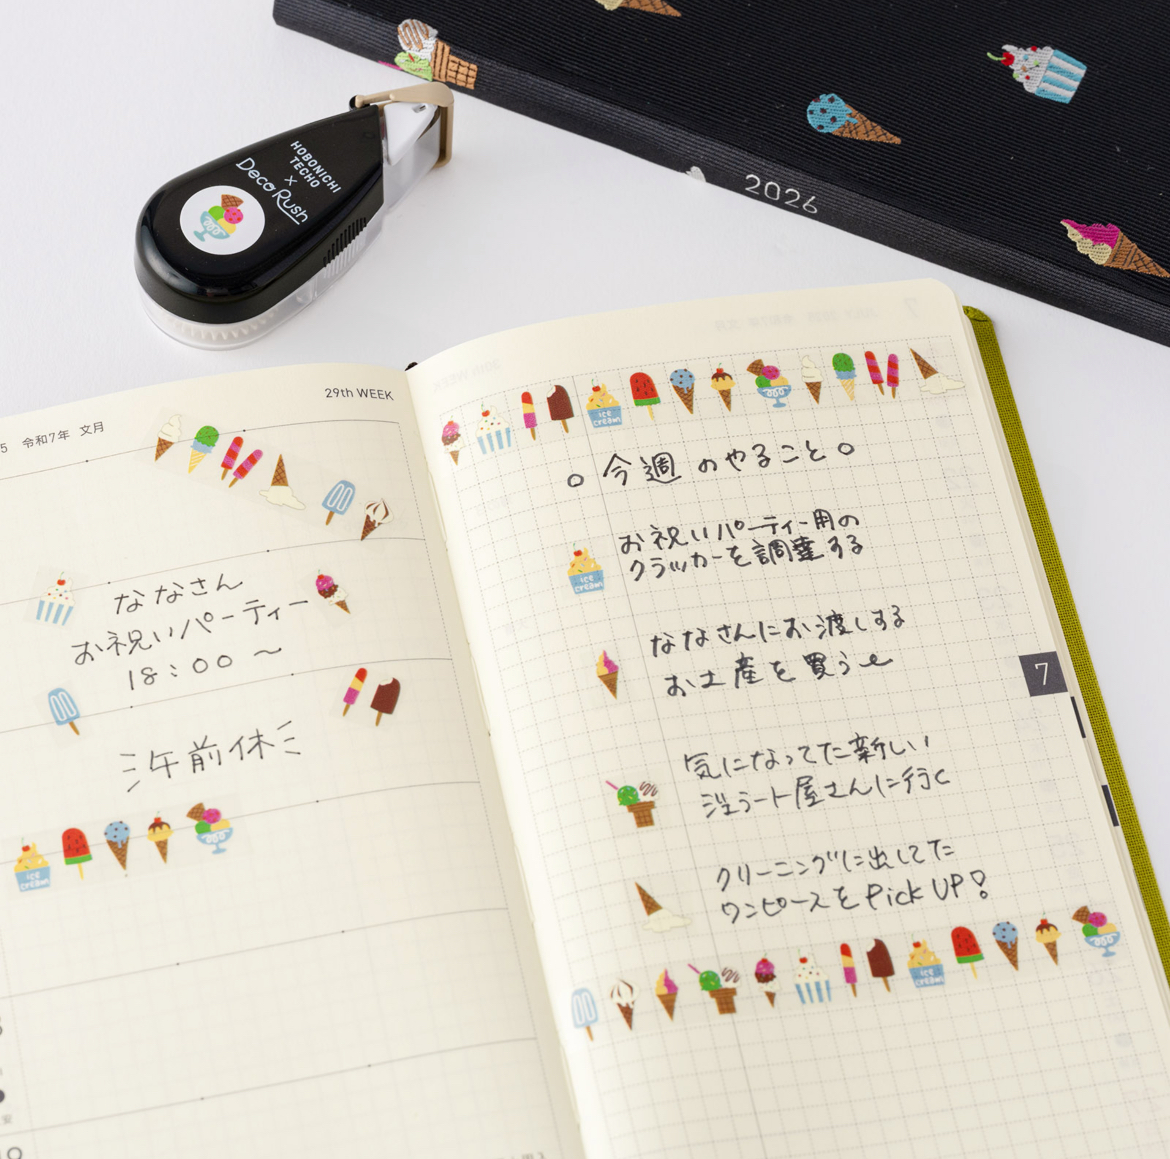 HOBONICHI
TECHO
×
Deco Rush
2026
5 令和7年 文月
29th WEEK
ななさん
お祝いパーティー
18:00〜
午前休
ice
cream
ice
cream
今週のやること
ice
cream
お祝いパーティー用の
クラッカーを調達する
ななさんにお渡しする
お土産を買う
気になってた新しい
ジェラート屋さんに行く
クリーニングに出してた
ワンピースをPick UP!
ice
cream
7